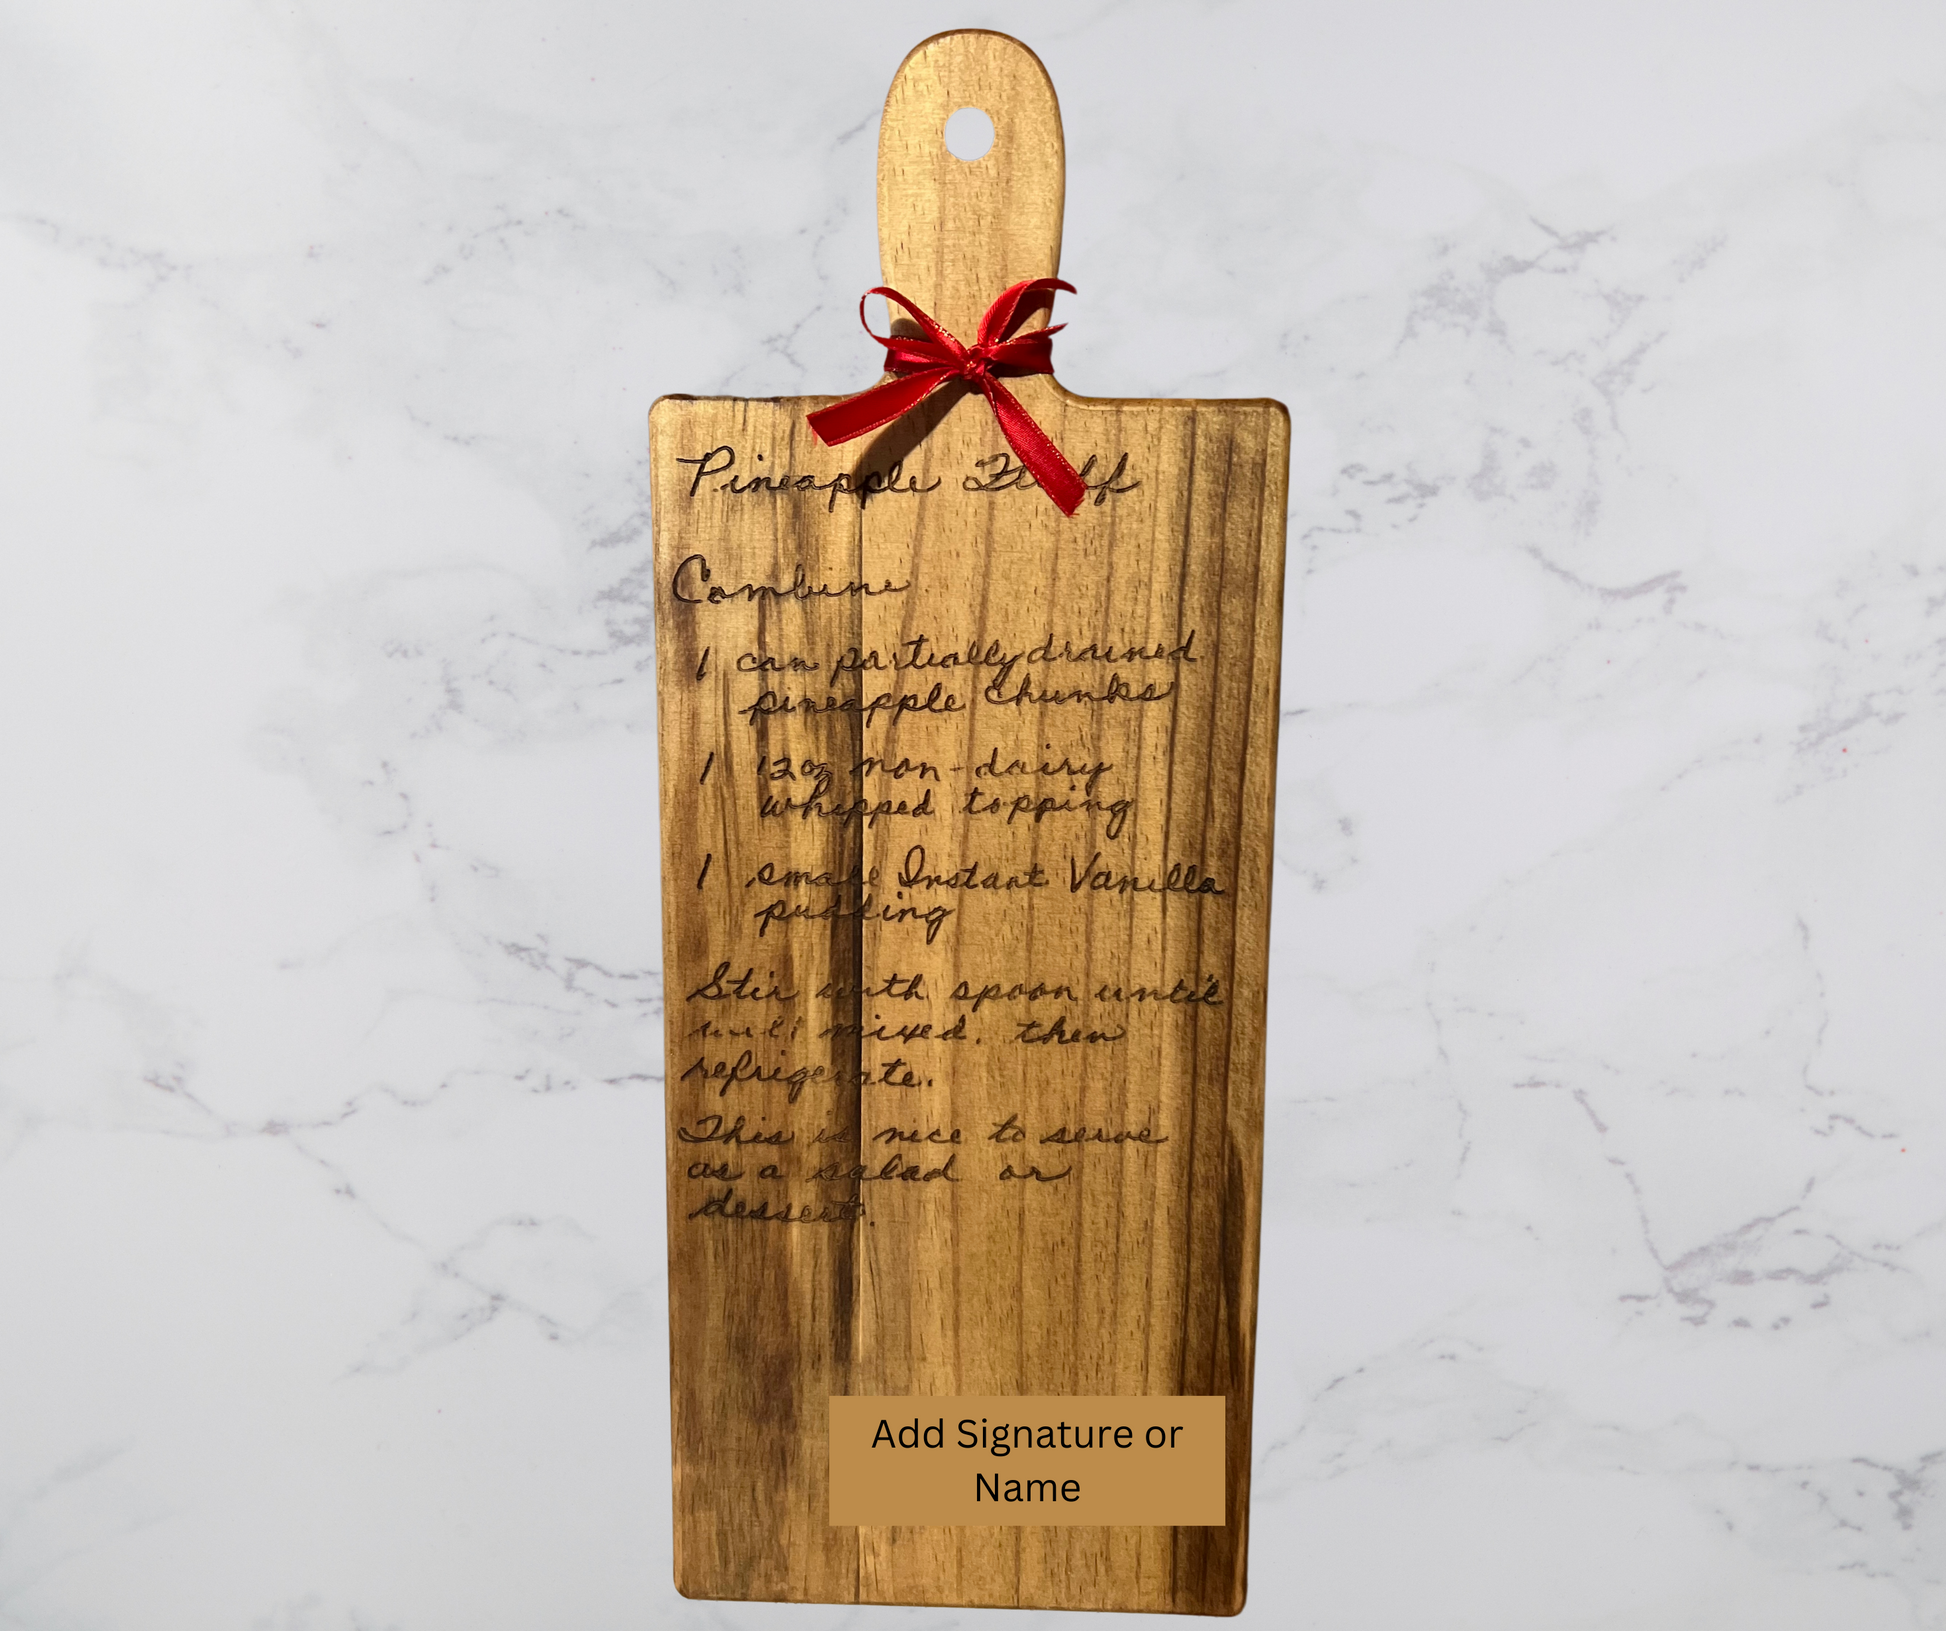 Pineapple Fluff
Combine
1 can partially drained
pineapple chunks
1 12oz non-dairy
whipped topping
1 small Instant Vanilla
pudding
Stir with spoon until
well mixed. then
refrigerate.
This is nice to serve
as a salad or
dessert.
Add Signature or
Name